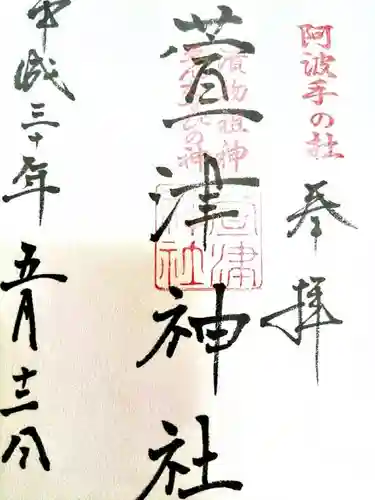 阿波手の社
奉拝
漬物祖神
萱津神社
平成三十年
五月十三日